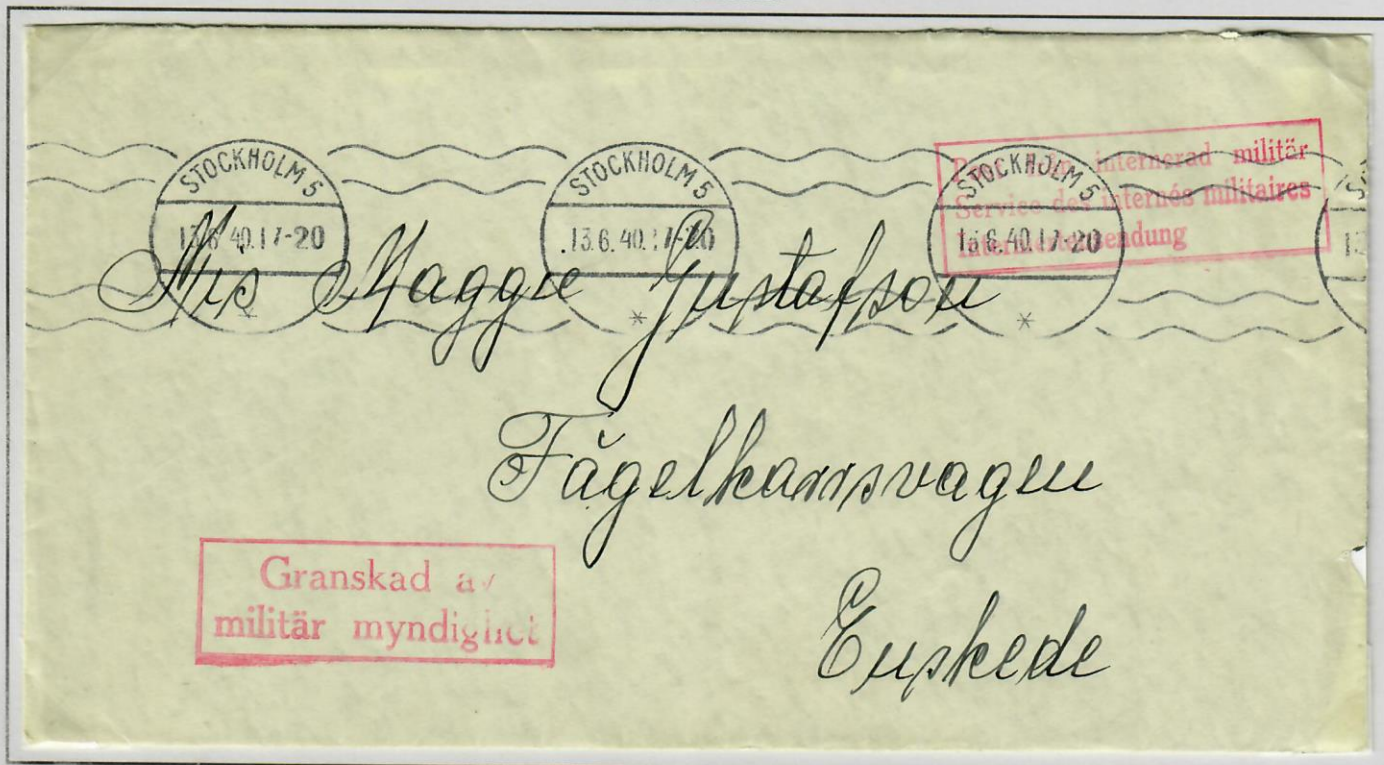 STOCKHOLM 5
13.6.40.17-20
STOCKHOLM 5
13.6.40.17-20
STOCKHOLM 5
13.6.40.17-20
internerad militär
Service des internés militaires
Mis Maggie Gustafson
Fågelkarrsvagen
Enskede
Granskad av
militär myndighet